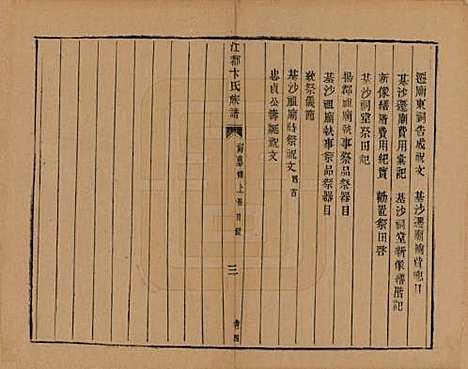 遷廟東祠告成祝文
基沙遷廟
基沙遷廟費用彙記
基沙祠堂新像
記
新像
費用紀實
勸置祭田啓
基沙祠堂祭田記
揚郡祖廟執事祭品祭器目
基沙祖廟執事祭品祭器目
致祭儀節
基沙祖廟時祭祝文
忠貞公壽誕祝文
江都卞氏族譜
上
目錄
三